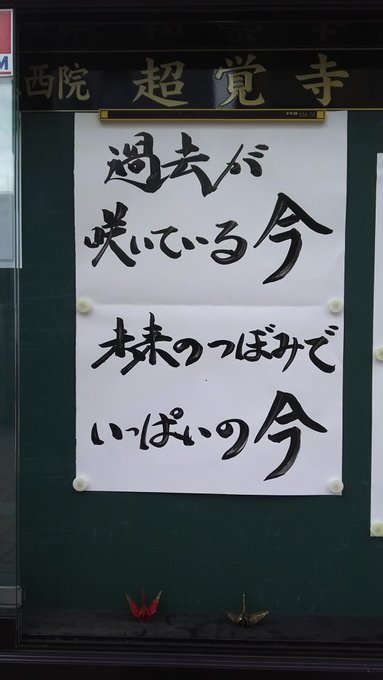 西院 超覚寺
過去が
咲いている今
未来のつぼみで
いっぱいの今